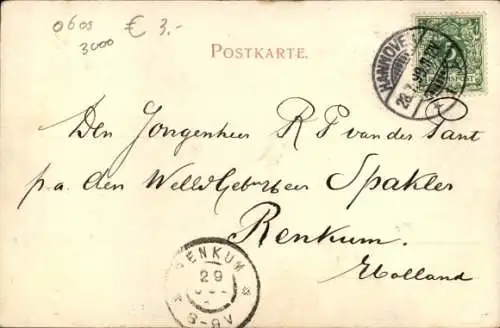 0605
3000
€ 3,-
POSTKARTE.
HANNOVER
5
REICHSPOST
Den Jongenheer R P van der Sant
p.a. den WelEdGeb Heer Spakler
Renkum.
Holland
RENKUM
29
8-9V